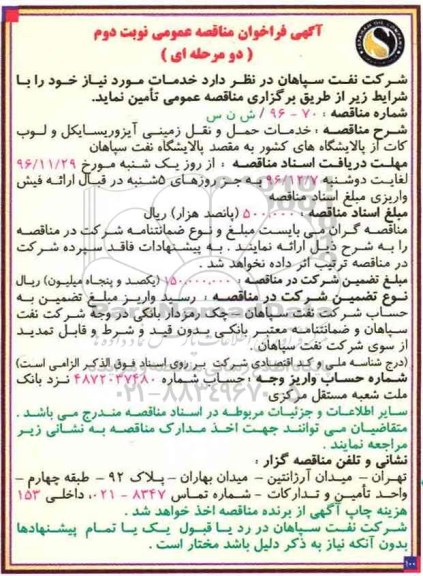 آگهی فراخوان مناقصه عمومی نوبت دوم
( دو مرحله ای )
شرکت نفت سپاهان در نظر دارد خدمات مورد نیاز خود را با
شرایط زیر از طریق برگزاری مناقصه عمومی تأمین نماید.
شماره مناقصه : ۷۰ - ۹۶ / ش ن س
شرح مناقصه : خدمات حمل و نقل زمینی آیزوریسایکل و لوب
کات از پالایشگاه های کشور به مقصد پالایشگاه نفت سپاهان
مهلت دریافت اسناد مناقصه : از روز یک شنبه مورخ ۹۶/۱۱/۲۹
لغایت دوشنبه ۹۶/۱۲/۷ به جز روزهای ۵شنبه در قبال ارائه فیش
واریزی مبلغ اسناد مناقصه
مبلغ اسناد مناقصه : ۵۰۰۰۰۰ (پانصد هزار) ریال
مناقصه گران می بایست مبلغ و نوع ضمانتنامه شرکت در مناقصه
را به شرح ذیل ارائه نمایند . به پیشنهادات فاقد سپرده شرکت
در مناقصه ترتیب اثر داده نخواهد شد .
مبلغ تضمین شرکت در مناقصه : ۱۵۰.۰۰۰.۰۰۰ (یکصد و پنجاه میلیون) ریال
نوع تضمین شرکت در مناقصه : رسید واریز مبلغ تضمین به
حساب شرکت نفت سپاهان - چک رمزدار بانکی در وجه شرکت نفت
سپاهان و ضمانتنامه معتبر بانکی بدون قید و شرط و قابل تمدید
از سوی شرکت نفت سپاهان.
(درج شناسه ملی و کد اقتصادی شرکت بر روی اسناد فوق الذکر الزامی است)
شماره حساب واریز وجه : حساب شماره ۴۸۷۲۰۳۷۴۸۰ نزد بانک
ملت شعبه مستقل مرکزی
سایر اطلاعات و جزئیات مربوطه در اسناد مناقصه مندرج می باشد .
متقاضیان می توانند جهت اخذ مدارک مناقصه به نشانی زیر
مراجعه نمایند .
نشانی و تلفن مناقصه گزار :
تهران - میدان آرژانتین - میدان بهاران - پلاک ۹۲ - طبقه چهارم -
واحد تأمین و تدارکات - شماره تماس ۸۳۴۷ - ۰۲۱ داخلی ۱۵۳
هزینه چاپ آگهی از برنده مناقصه اخذ خواهد شد .
شرکت نفت سپاهان در رد یا قبول یک یا تمام پیشنهادها
بدون آنکه نیاز به ذکر دلیل باشد مختار است .
۱۰۰